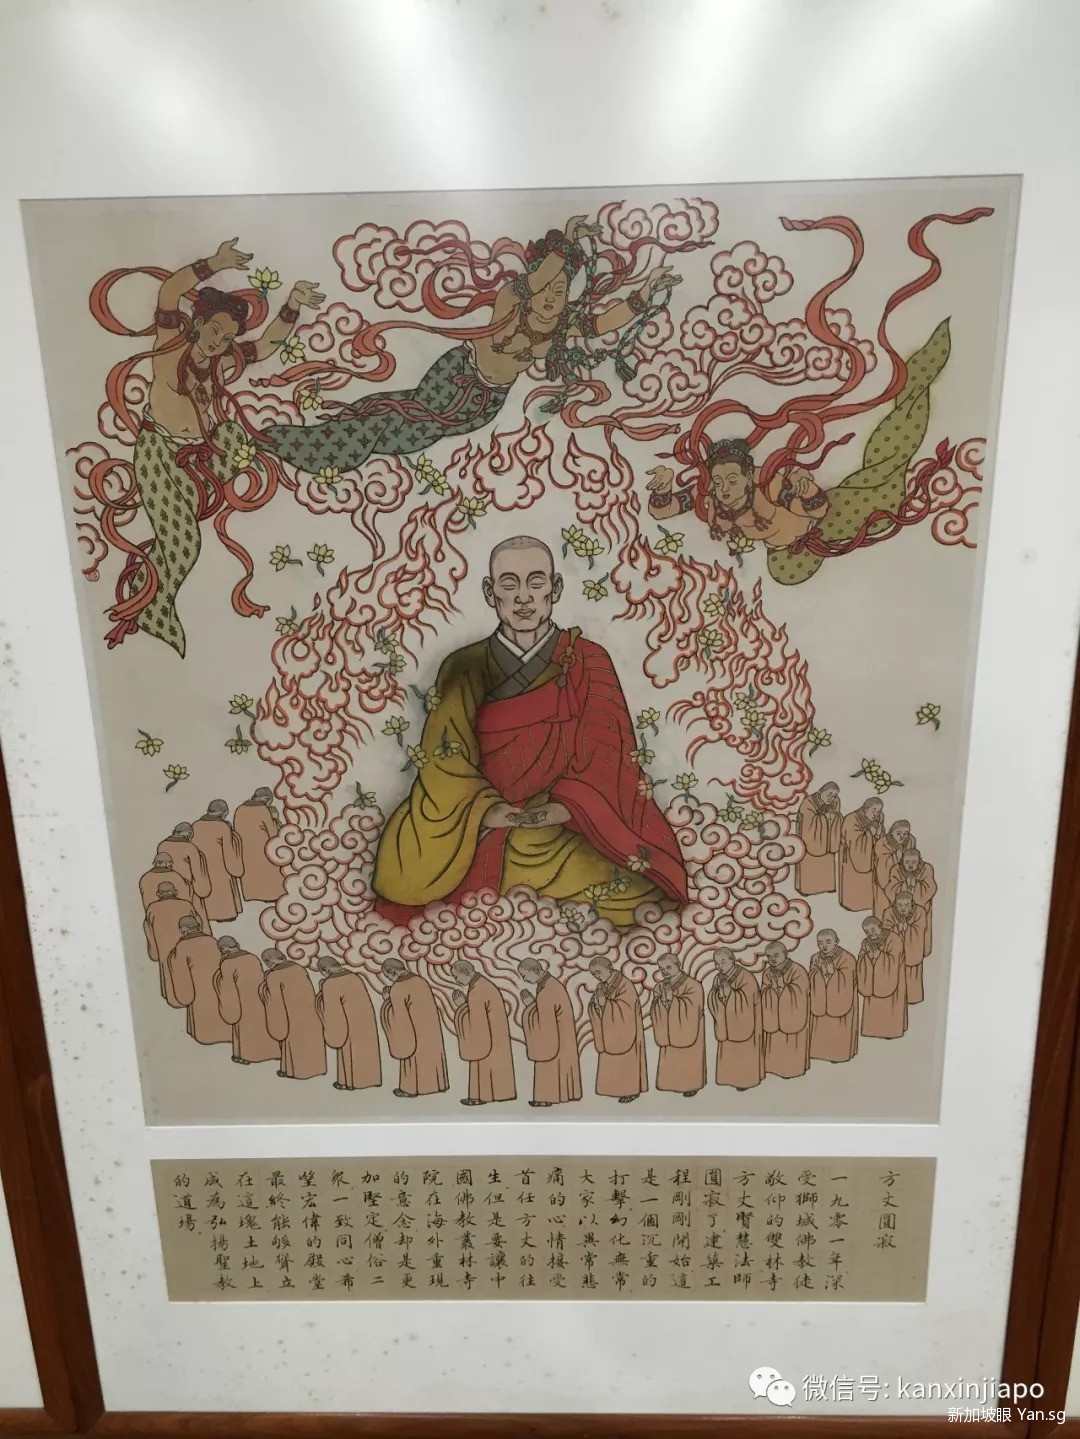 方丈圓寂
一九零一年深
受獅城佛教徒
敬仰的雙林寺
方丈賢慧法師
圓寂了建築工
程剛剛開始這
是一個沉重的
打擊幻化無常
大家以異常悲
痛的心情接受
首任方丈的往
生但是要讓中
國佛教叢林寺
院在海外重現
的意念却是更
加堅定僧俗二
衆一致同心希
望宏偉的殿堂
最終能够聳立
在這塊土地上
成為弘揚聖教
的道場.
微信号: kanxinjiapo
新加坡眼 Yan.sg